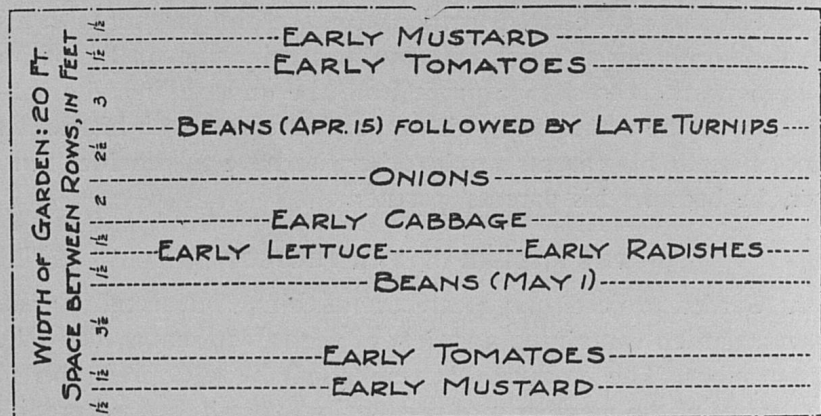 WIDTH OF GARDEN: 20 FT.
SPACE BETWEEN ROWS, IN FEET
1½
EARLY MUSTARD
1½
EARLY TOMATOES
3
BEANS (APR. 15) FOLLOWED BY LATE TURNIPS
2½
ONIONS
2
EARLY CABBAGE
1½
EARLY LETTUCE EARLY RADISHES
1½
BEANS (MAY 1)
3½
EARLY TOMATOES
1½
EARLY MUSTARD
1½